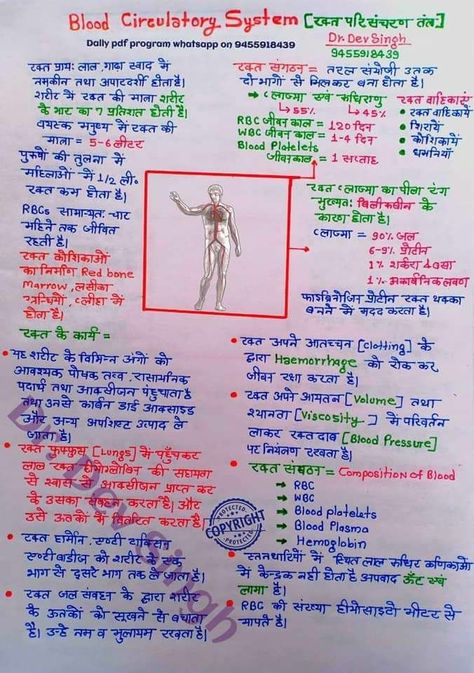 Blood Circulatory System [रक्त परिसंचरण तंत्र]
Daily pdf program whatsapp on 9455918439
Dr. Dev Singh
9455918439
रक्त प्रायः लाल, गाढ़ा स्वाद में
नमकीन तथा अपारदर्शी होता है।
शरीर में रक्त की मात्रा शरीर
के भार का 7 प्रतिशत होती है।
वयस्क मनुष्य में रक्त की
मात्रा = 5-6 लीटर
पुरुषों की तुलना में
महिलाओं में 1/2 ली०
रक्त कम होता है।
RBCs सामान्यतः चार
महिने तक जीवित
रहती है।
रक्त कोशिकाओं
का निर्माण Red bone
Marrow, लसीका
ग्रन्थियों, प्लीहा में
होता है।
रक्त संगठन = तरल संयोजी उतक
दो भागों से मिलकर बना होता है।
प्लाज्मा एवं रुधिराणु
55% 45%
RBC जीवन काल = 120 दिन
WBC जीवन काल = 1-4 दिन
Blood Platelets
जीवनकाल = 1 सप्ताह
रक्त वाहिकाएं
• रक्त वाहिकायें
• शिरायें
• कोशिकायें
• धमनियाँ
रक्त प्लाज्मा का पीला रंग
मुख्यतः बिलीरूबीन के
कारण होता है।
प्लाज्मा = 90% जल
6-9% प्रोटीन
1% शर्करा वसा
1% अकार्बनिक लवण
फाइब्रिनोजिन प्रोटीन रक्त थक्का
बनने में मदद करता है।
रक्त के कार्य =
• यह शरीर के विभिन्न अंगों को
आवश्यक पोषक तत्व, रासायनिक
पदार्थ तथा आक्सीजन पहुंचाता है
तथा उनसे कार्बन डाई आक्साइड
और अन्य अपशिष्ट उत्पाद ले
जाता है।
• रक्त फुफ्फुस [Lungs] में पहुँचकर
लाल रक्त हीमोग्लोबिन की सहायता
से श्वास से आक्सीजन प्राप्त कर
के उसका संवहन करता है। और
उसे ऊतकों को वितरित करता है।
• रक्त हार्मोन, एन्टी टाक्सिन
एन्टीबाडीज को शरीर के एक
भाग से दूसरे भाग तक ले जाता है।
• रक्त जल संवहन के द्वारा शरीर
के ऊतकों को सूखने से बचाता
है। उन्हे नम व मुलायम रखता है।
• रक्त अपने आतंचन [Clotting] के
द्वारा Haemorrhage को रोक कर
जीवन रक्षा करता है।
• रक्त अपने आयतन [Volume] तथा
श्यानता [Viscosity] में परिवर्तन
लाकर रक्त दाब [Blood Pressure]
पर नियंत्रण रखता है।
• रक्त संघठन = Composition of Blood
→ RBC
→ WBC
→ Blood platelets
→ Blood Plasma
→ Hemoglobin
• स्तनधारियों में स्थित लाल रुधिर कणिकाओं
में केन्द्रक नही होता है अपवाद ऊँट एवं
लामा है।
• RBC की संख्या हीमोसाइटो मीटर से
मापते है।
PROTECTED
COPYRIGHT
PROTECTED
Dr. Dev Singh